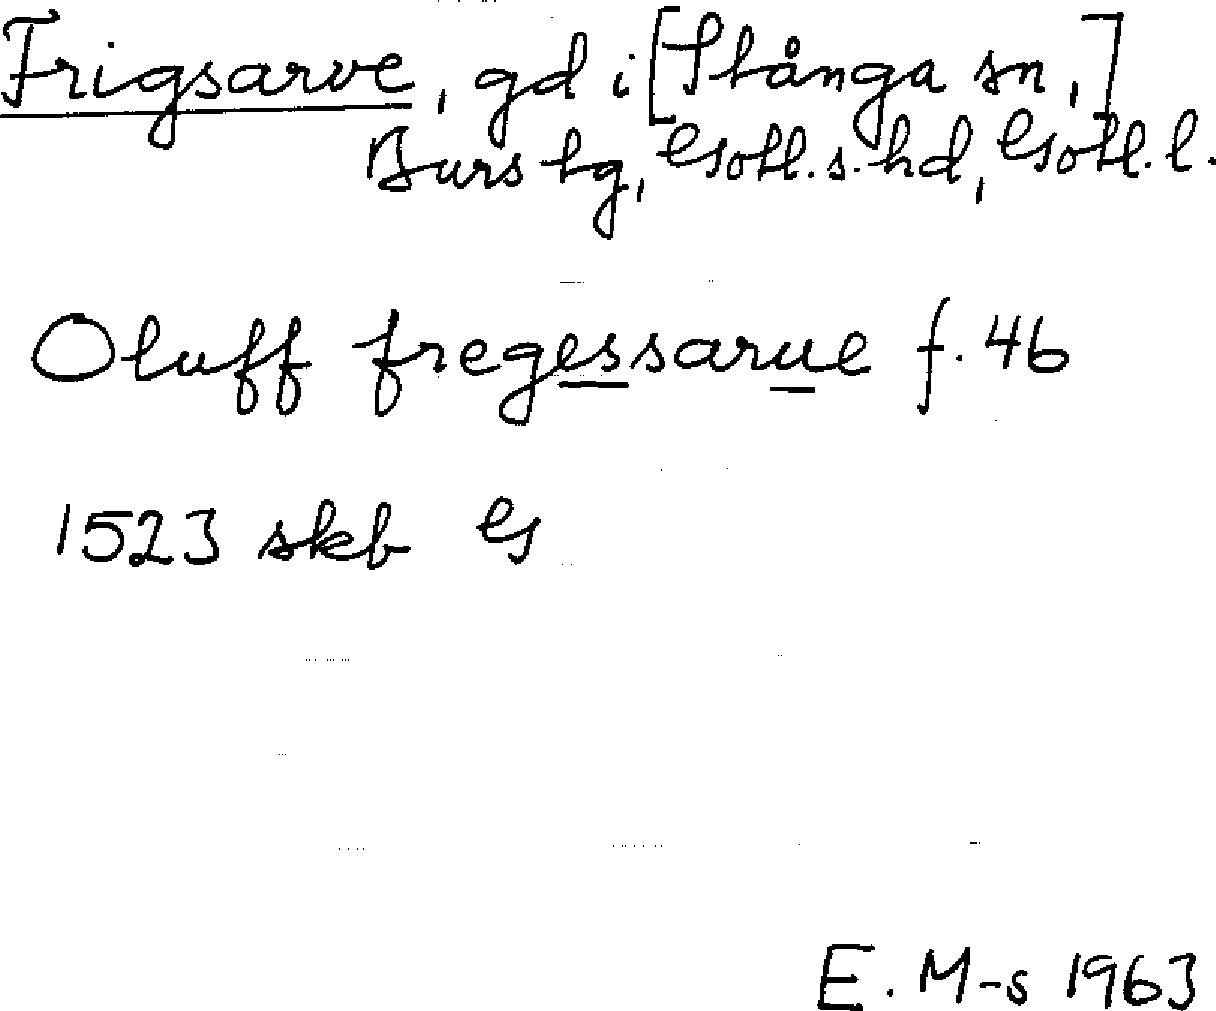 Frigsarve, gd i [Stånga sn,]
Burs tg, Gotl. s. hd, Gotl. l.
Oluff fregessarue f. 46
1523 skb G
E. M-s 1963